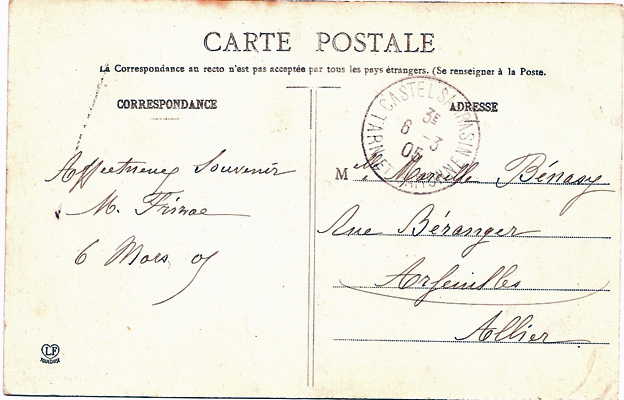 CARTE POSTALE
La Correspondance au recto n'est pas acceptée par tous les pays étrangers. (Se renseigner à la Poste.
CORRESPONDANCE
ADRESSE
CASTELSARRASIN
TARN-ET-GARONNE
3E
6 -3
05
Affectueux Souvenir
M.
6 Mars 05
M lle Marcelle Bénazy
Rue Béranger
Arfeuilles
Allier
LF
TOULOUSE